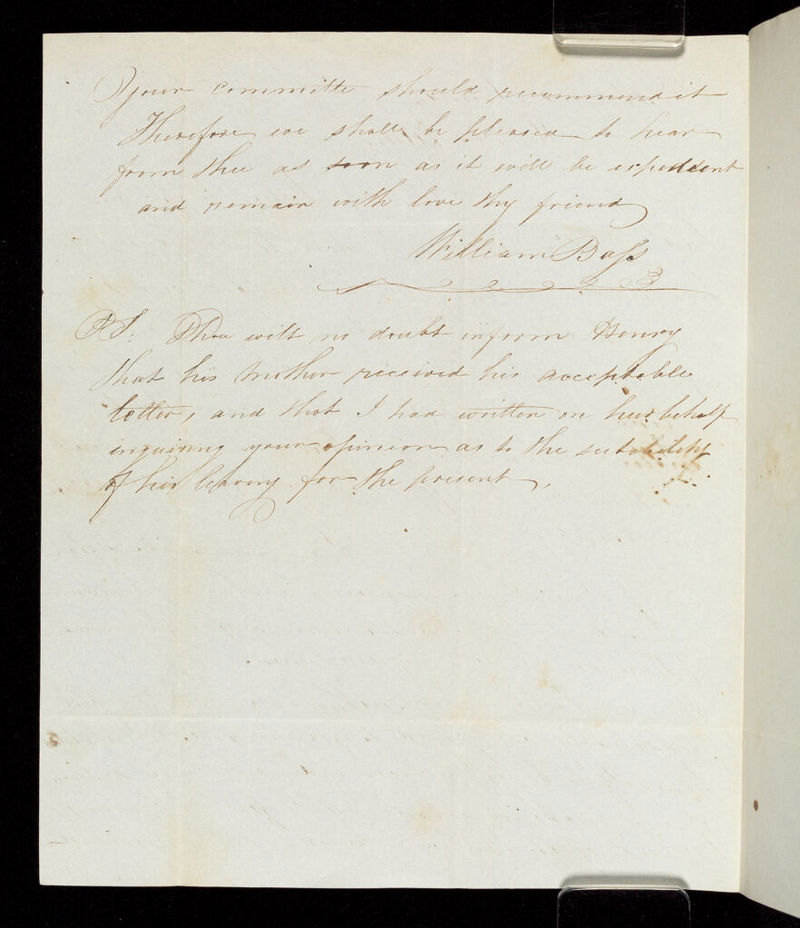 your committe should recommend it
Therefore we shall be pleased to hear
from thee as soon as it will be expedient
and remain with love thy friend
William Bass
PS: Thou wilt no doubt inform Henry
that his Mother received his acceptable
letter, and that I had written on her behalf
inquiring your opinion as to the suitability
of his leaving for the present,